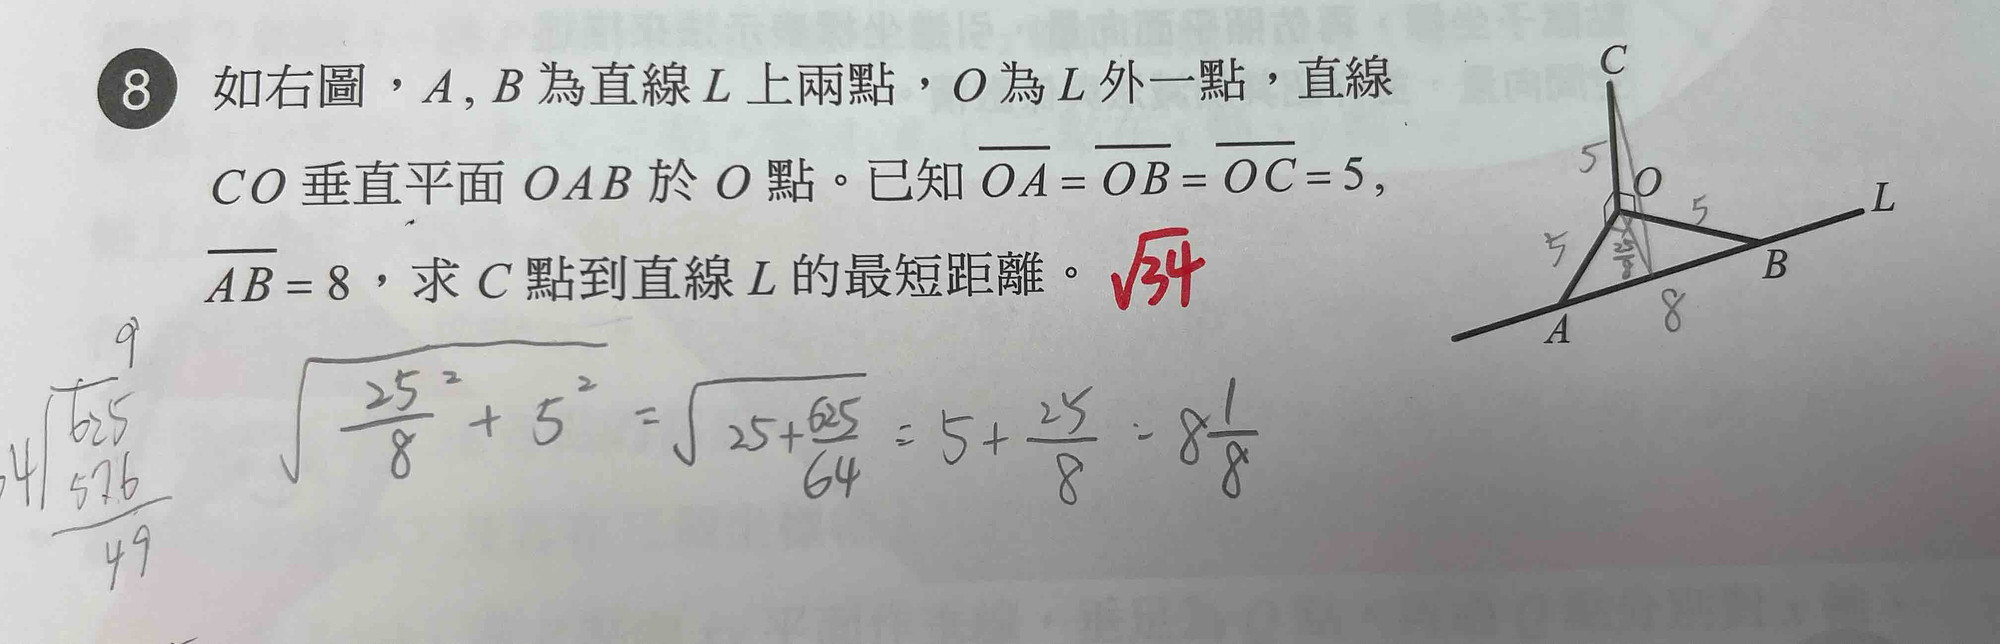 8 如右圖，A, B 為直線 L 上兩點，O 為 L 外一點，直線
CO 垂直平面 OAB 於 O 點。已知 \overline{OA} = \overline{OB} = \overline{OC} = 5,
\overline{AB} = 8，求 C 點到直線 L 的最短距離。 √34
C
5
O
5
5
25/8
L
B
8
A
√(25/8² + 5²) = √(25 + 625/64) = 5 + 25/8 = 8 1/8
9
4 625
576
49